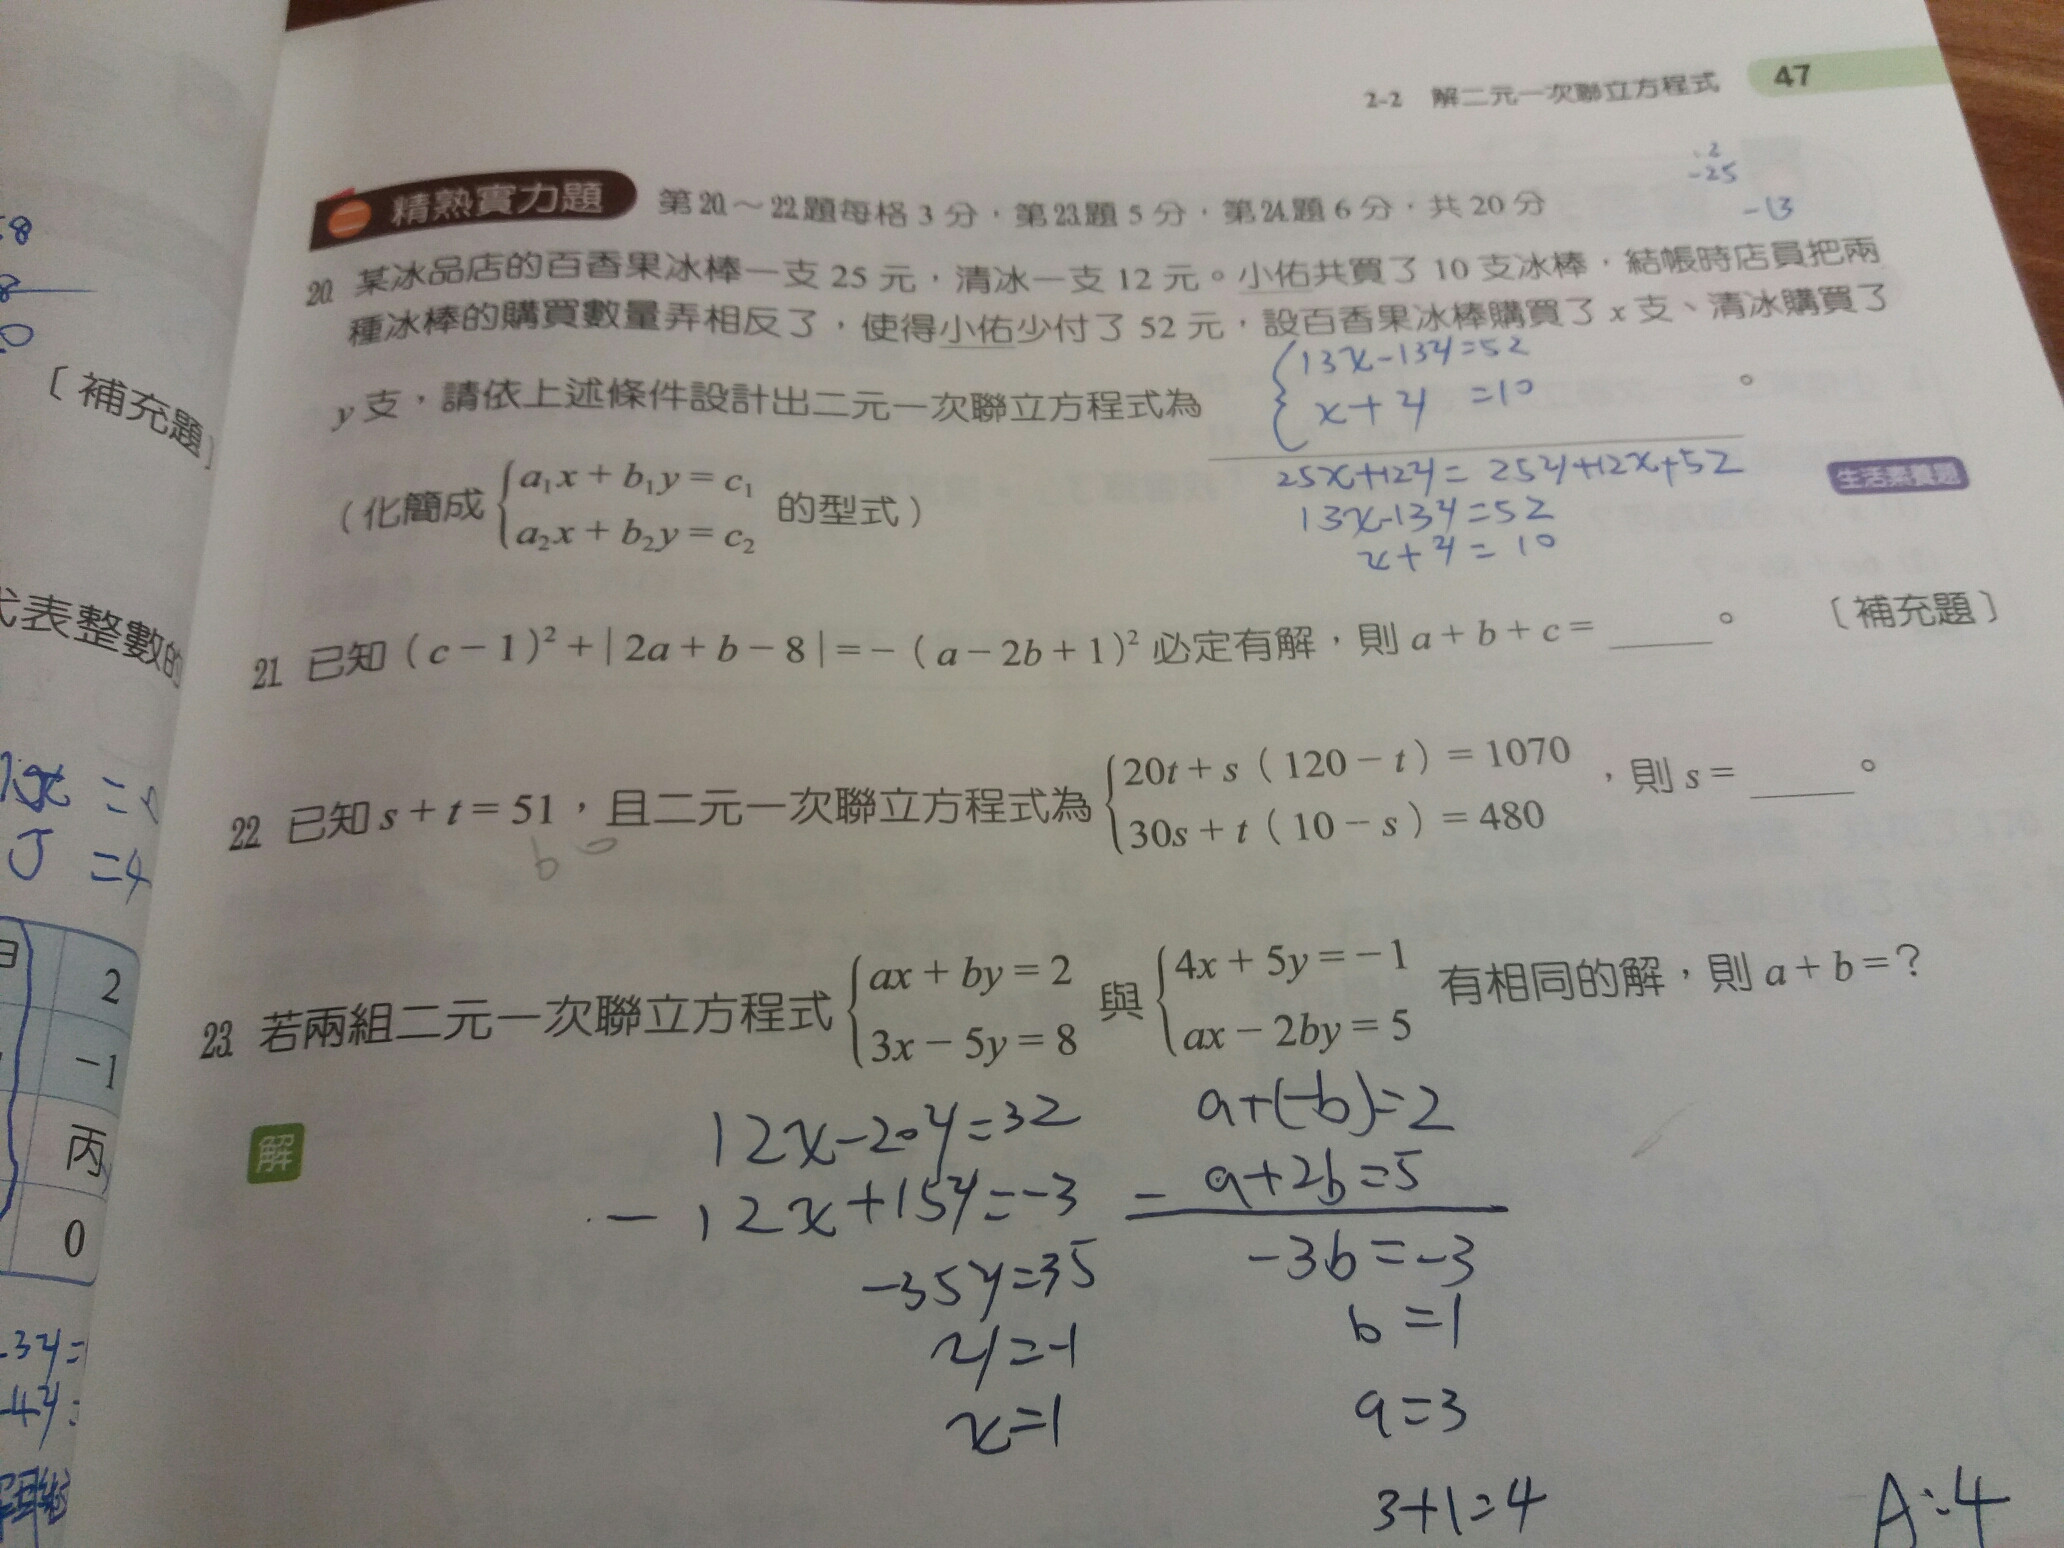 2-2 解二元一次聯立方程式 47
-25
-13
二 精熟實力題 第20.～22.題每格3分，第23.題5分，第24.題6分，共20分
20. 某冰品店的百香果冰棒一支25元，清冰一支12元。小佑共買了10支冰棒，結帳時店員把兩
種冰棒的購買數量弄相反了，使得小佑少付了52元，設百香果冰棒購買了x支、清冰購買了
y支，請依上述條件設計出二元一次聯立方程式為 。
13x-13y=52
x+y =10
（化簡成 a₁x+b₁y=c₁ 的型式）
a₂x+b₂y=c₂
25x+12y=25y+12x+52
13x-13y=52
x+y=10
生活素養題
21. 已知（c－1）²＋|2a＋b－8|＝－（a－2b＋1）²必定有解，則a＋b＋c＝_____。 〔補充題〕
22. 已知s＋t＝51，且二元一次聯立方程式為 20t＋s（120－t）＝1070 ，則s＝_____。
30s＋t（10－s）＝480
b
23. 若兩組二元一次聯立方程式 ax＋by＝2 與 4x＋5y＝－1 有相同的解，則a＋b＝？
3x－5y＝8 ax－2by＝5
解
12x-20y=32
- 12x+15y=-3
-35y=35
y=-1
x=1
a+(-b)=2
- a+2b=5
-3b=-3
b=1
a=3
3+1=4
A:4
〔補充題〕
代表整數的
=4
2
-1
丙
0